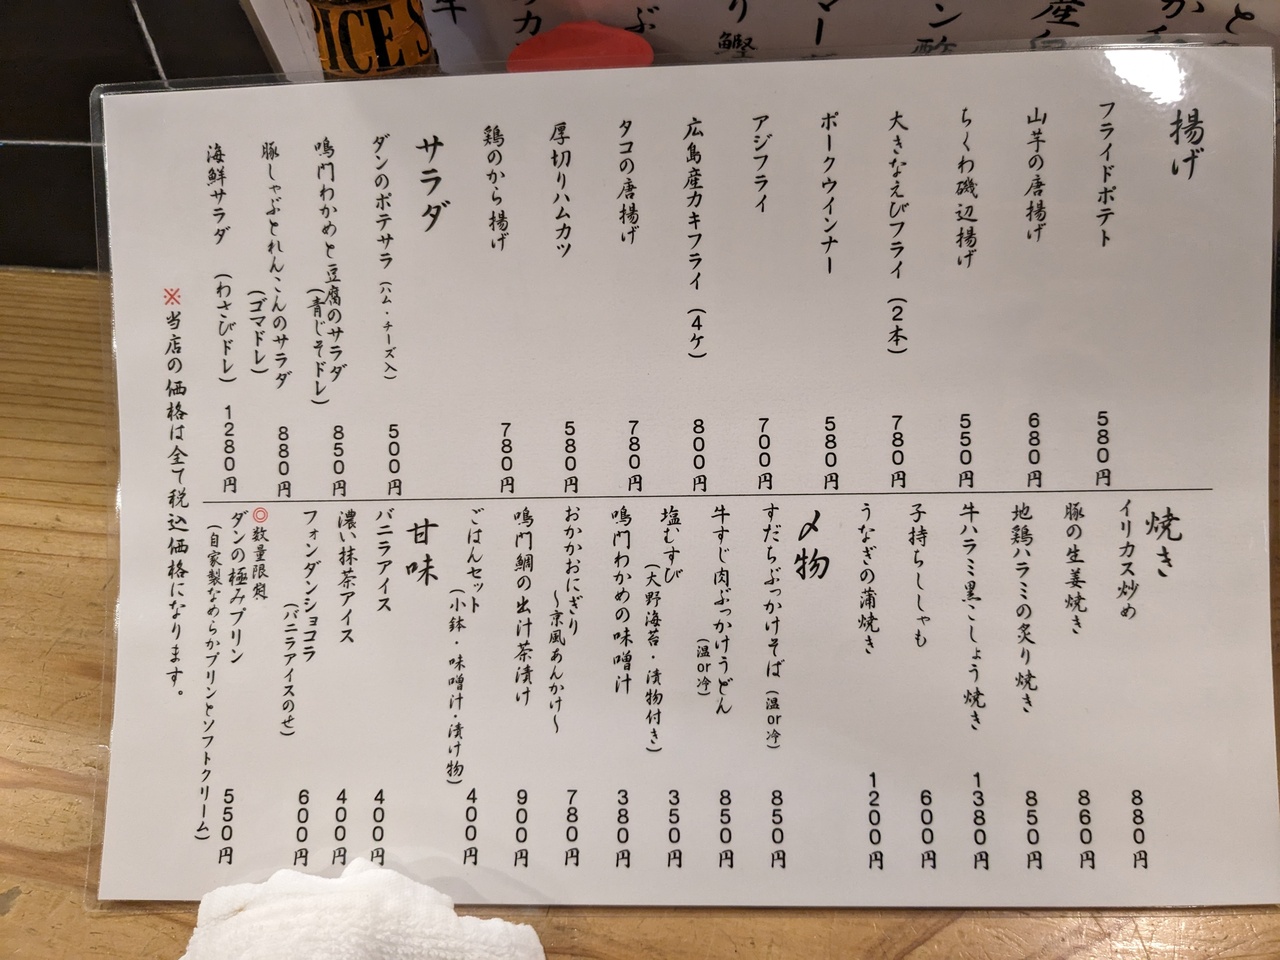 揚げ
フライドポテト 580円
山芋の唐揚げ 680円
ちくわ磯辺揚げ 550円
大きなえびフライ(2本) 780円
ポークウインナー 580円
アジフライ 700円
広島産カキフライ(4ケ) 800円
タコの唐揚げ 780円
厚切りハムカツ 580円
鶏のから揚げ 780円
サラダ
ダンのポテサラ(ハム・チーズ入) 500円
鳴門わかめと豆腐のサラダ
(青じそドレ) 850円
豚しゃぶとれんこんのサラダ
(ゴマドレ) 880円
海鮮サラダ (わさびドレ) 1280円
※当店の価格は全て税込価格になります。
焼き
イリカス炒め 880円
豚の生姜焼き 860円
地鶏ハラミの炙り焼き 850円
牛ハラミ黒こしょう焼き 1380円
子持ちししゃも 600円
うなぎの蒲焼き 1200円
〆物
すだちぶっかけそば(温or冷) 850円
牛すじ肉ぶっかけうどん
(温or冷) 850円
塩むすび
(大野海苔・漬物付き) 350円
鳴門わかめの味噌汁 380円
おかかおにぎり
~京風あんかけ~ 780円
鳴門鯛の出汁茶漬け 900円
ごはんセット
(小鉢・味噌汁・漬け物) 400円
甘味
バニラアイス 400円
濃い抹茶アイス 400円
フォンダンショコラ
(バニラアイスのせ) 600円
◎数量限定
ダンの極みプリン
(自家製なめらかプリンとソフトクリーム) 550円